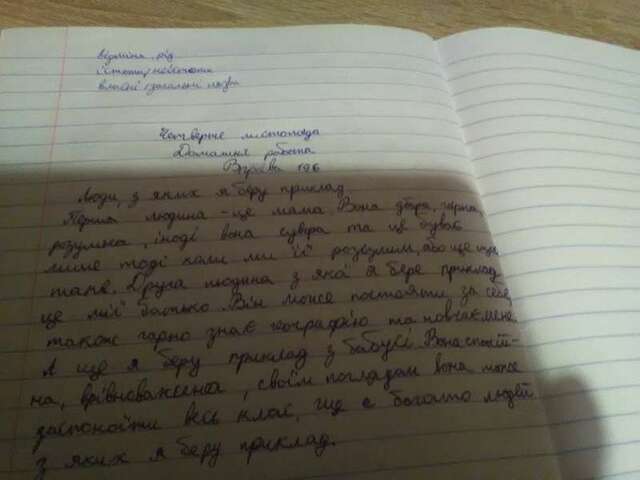 відміна, рід
істоти, неістоти
власні, загальні назви
Четверте листопада
Домашня робота
Вправа 196
Люди, з яких я беру приклад.
Перша людина - це мама. Вона добра, гарна,
розумна, іноді вона сувора та це буває
лише тоді коли ми її розсулим, або ще щось
таке. Друга людина з якої я бере приклад
це мій батько. Він може постояти за себе,
також гарно знає географію та навчає мене.
А ще я беру приклад з бабусі. Вона спокій-
на, врівноважена, своїм поглядам вона може
заспокоїти весь клас, ще є багато людей
з яких я беру приклад.